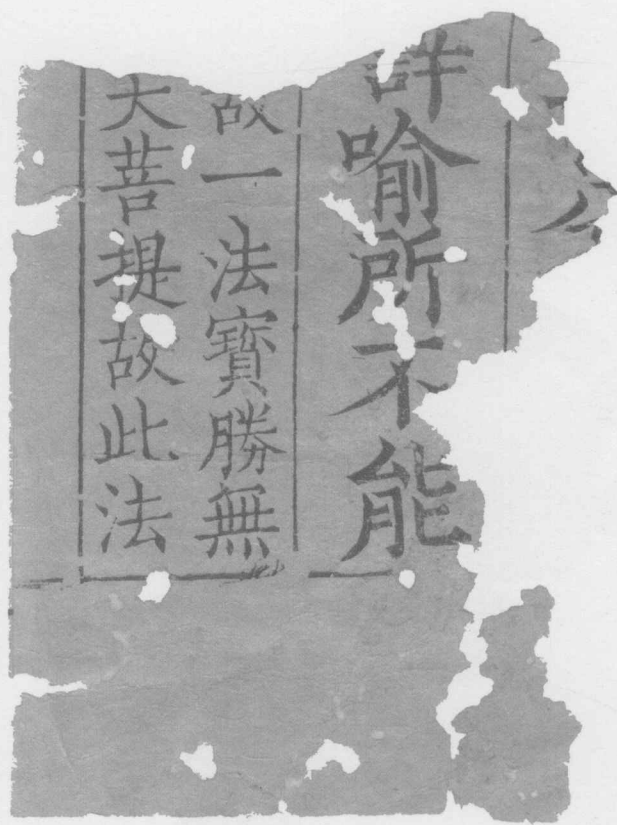 喻所不能
故一法寶勝無
大菩提故此法